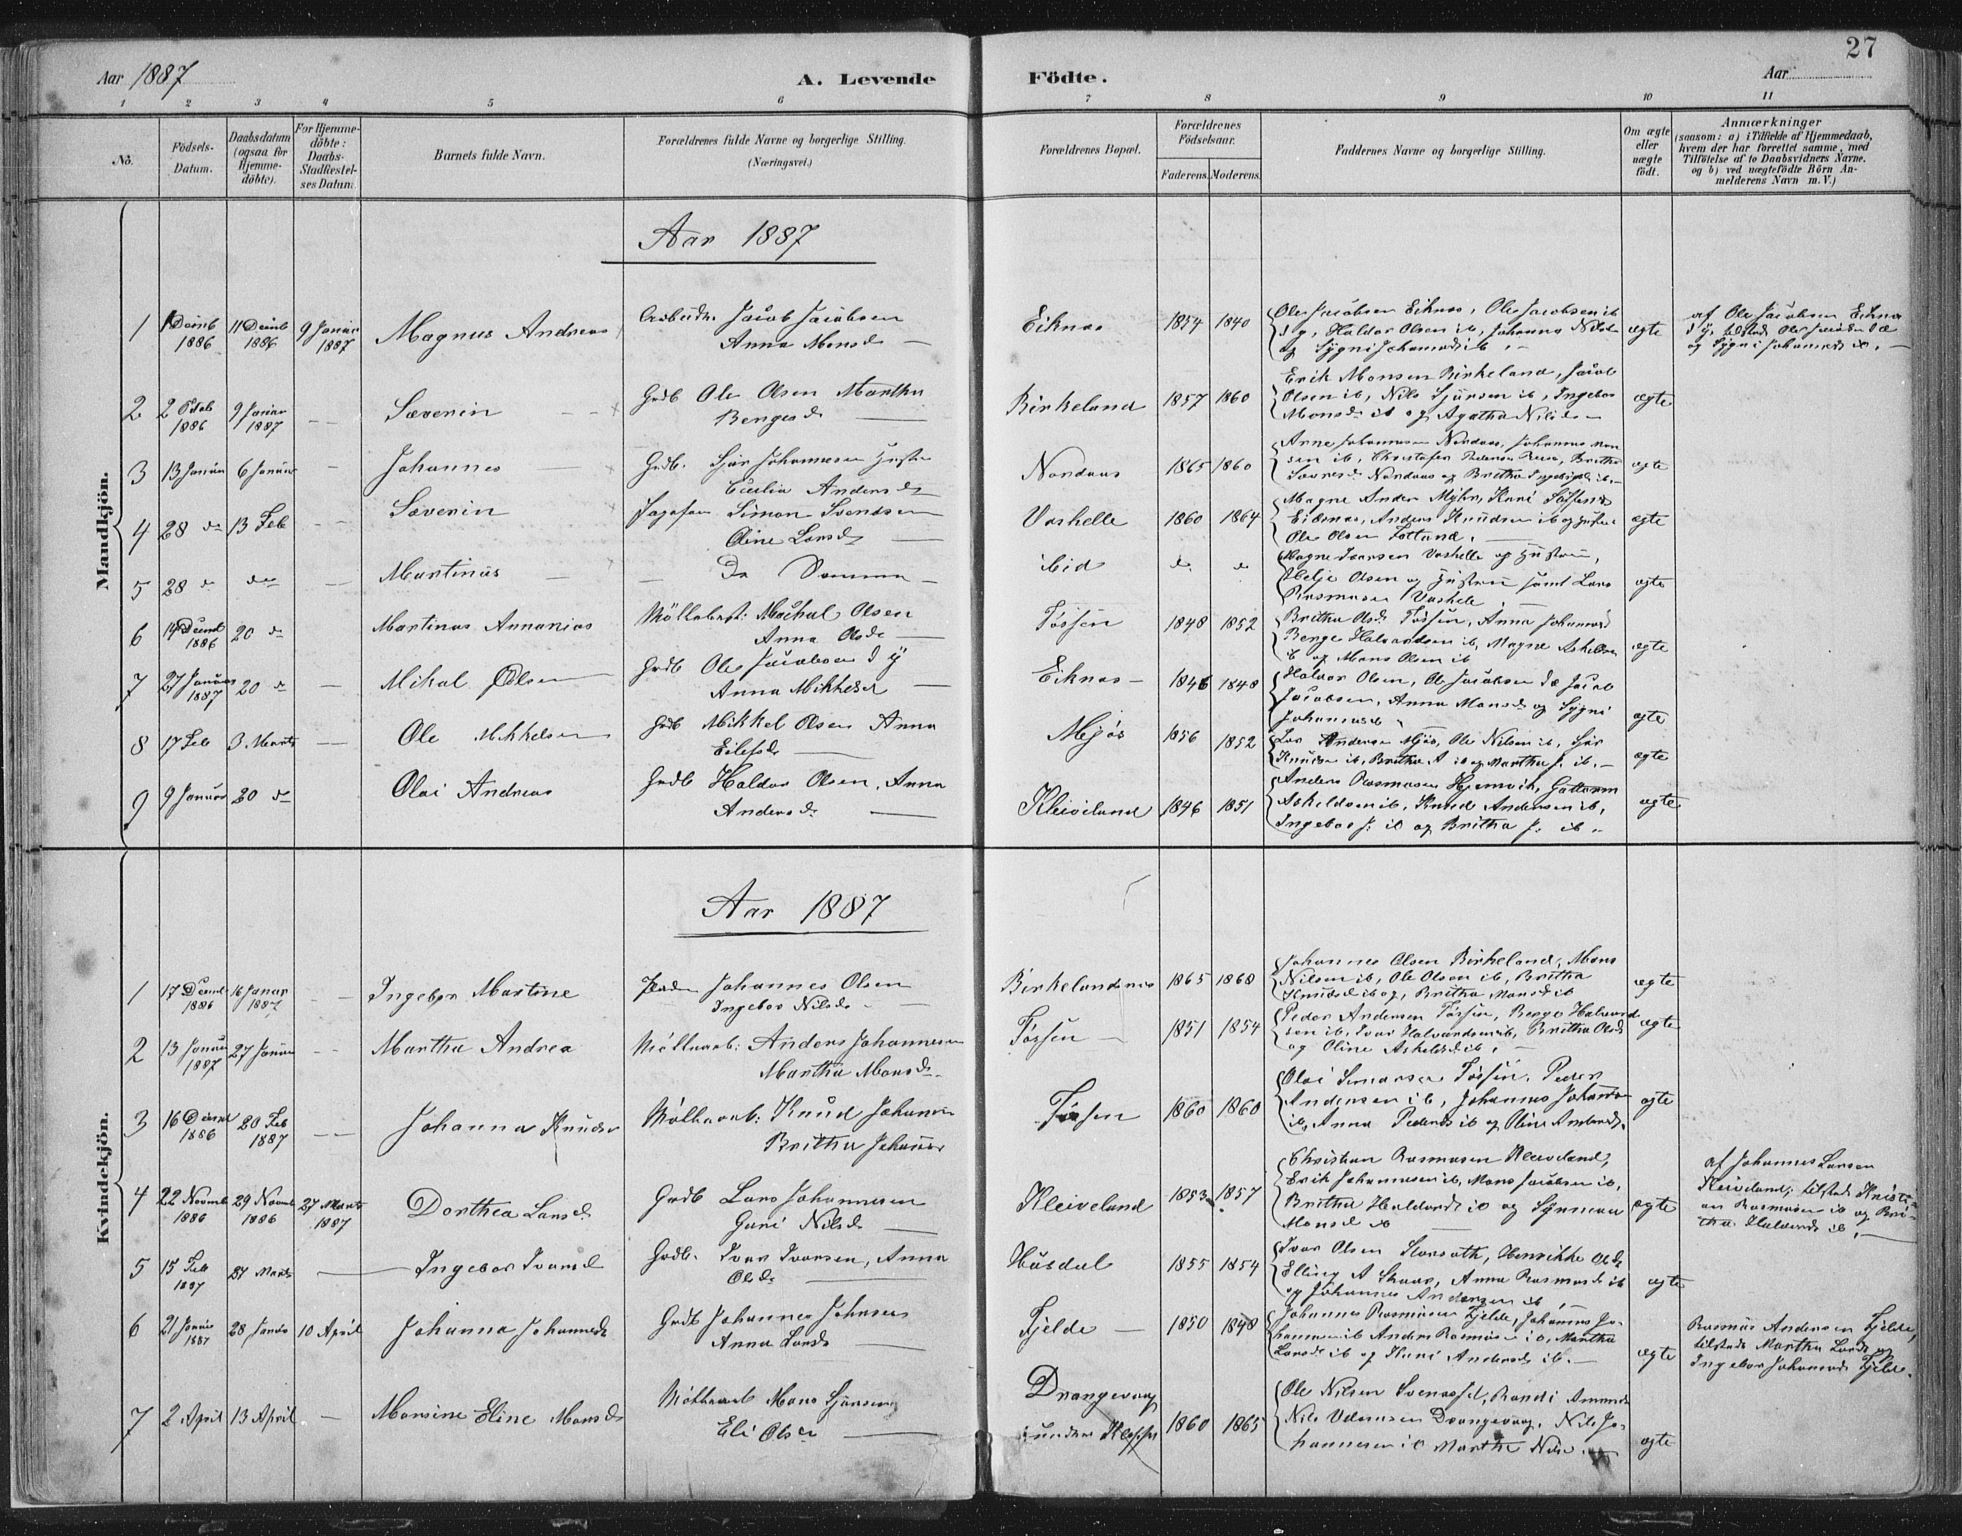 27
Aar 1887
A. Levende Födte.
Aar
1 2 3 4 5 6 7 8 9 10 11
Nô.
Födsels-Datum.
Daabsdatum (ogsaa for Hjemme-döbte).
For Hjemme-döbte: Daabs-Stadfæstel-ses Datum
Barnets fulde Navn.
Forældrenes fulde Navne og borgerlige Stilling. (Næringsvei.)
Forældrenes Bopæl.
Forældrenes Födselsaar.
Faderens. Moderens.
Faddernes Navne og borgerlige Stilling.
Om ægte eller uægte födt.
Anmærkninger
(saasom: a) i Tilfælde af Hjemmedaab,
hvem der har forrettet samme, med
Tilföielse af to Daabsvidners Navne.
og b) ved uægtefödte Börn An-
melderens Navn m. V.)
Mandkjön.
Aar 1887
1 1 Decmb 1886 11 Decmb 1886 9 Januar 1887 Magnus Andreas Jacob Jacobsen
Anna Monsd Eiknas 1854 1840 Ole Jacobsen Eiknas, Ole Jacobsen ib
d y, Haldor Olsen ib, Johanna Nilsd
og Sygni Johannesd ib ægte af Ole Jacobsen Eiknas
d y, tilstede Ole Jacobsen d æ
og Sygni Johannesd ib.
2 2 1886 9 Januar 1887 Severin Grdb Ole Olsen Martha
Bengesd Birkeland 1857 1860 Erik Monsen Birkeland, Jacob
Olsen ib, Nils Sjursen ib, Ingebor
Monsd ib og Agatha Nilsd ægte
3 13 Januar 6 Januar Johannes Grdb. Sjur Johannesen
Cecilia Andersd Nordaas 1865 1860 Arne Johannesen Nordaas, Johannes
ib, Christofer Pedersen ægte
4 28 13 Feb Severin Simon Svendsen
Oline Larsd Vashelle 1860 1864 Magne Ander Myhr,
Eidsnes, Anders Knudsen ib og
Ole Olsen ægte
5 28 Martinus Do Samme ibid Magne Iversen Vashelle og
Helje Olsen og samt Lars
Rasmusen Vashelle ægte
6 14 Decmb 1886 20 Martinus Annanias Möllearb: Olsen
Anna Olsd Tøssen 1848 1852 Britha Olsd Tøssen, Anna Johannesd
Berge Halvardsen ib, Magne Askeldsen
ib og Mons Olsen ib ægte
7 27 Januar 1887 20 Mikal Olsen Grdb Ole Jacobsen d y
Anna Eiknas 1846 1848 Haldor Olsen, Ole Jacobsen d æ Jacob
Jacobsen, Anna Monsd og Sygni
Johannesd ib ægte
8 17 Feb 3 Marts Ole Mikkelsen Grdb Mikkel Olsen Anna
Eilefsd Mjøs 1856 1852 Lar Andersen Mjøs, Ole Nilsen ib, Sjur
Knudsen ib, Britha A ib og Martha J. ib. ægte
9 9 Januar 20 Olai Andreas Grdb Haldor Olsen, Anna
Andersd Kleiveland 1846 1851 Anders Rasmusen Hjemvik, Guttorm
Askeldsen ib, Knud Andersen ib,
Ingebor J. ib og Britha J. ib ægte
Kvindekjön.
Aar 1887
1 17 Decmb 1886 16 Januar 1887 Ingebor Martine Johannes Olsen
Ingebor Nilsd Birkelandnes 1865 1868 Johannes Olsen Birkeland, Mons
Nilsen ib, Ole Olsen ib, Britha
Knudsd ib og, Britha Monsd ib ægte
2 13 Januar 1887 27 Januar Martha Andrea Möllearb: Anders Johannesen
Martha Monsd Tøssen 1851 1854 Peder Andersen Tøssen, Berge Halvard
sen ib, Ivar Halvardsen ib, Britha Olsd
og Oline Askeldsd ib. ægte
3 16 Decmb 1886 20 Feb 1887 Johanna Knudsd Möllearb: Knud Johannes
Britha Johannes Tøssen 1860 1860 Olai Simonsen Tøssen, Peder
Andersen ib, Johannes Johannes
ib, Anna Pedersd ib og Oline Andersd. ægte
4 22 Novmb 1886 29 Novmb 1886 27 Marts 1887 Dorthea Larsd Grdb Lars Johannesen
Guri Nilsd Kleiveland 1853 1857 Christian Rasmusen Kleiveland,
Erik Johannesen ib, Mons Jacobsen ib,
Britha Haldorsd ib og Synneva
Monsd ib ægte af Johannes Larsen
Kleiveland; tilstede Kristi-
an Rasmusen ib og Bri-
tha Haldorsd ib.
5 15 Feb 1887 27 Marts Ingebor Ivarsd Grdb. Ivar Ivarsen, Anna
Olsd Husdal 1855 1854 Ivar Olsen, Henrikke Olsd
Elling A Skaar, Anna Rasmusd ib
og Johannes Andersen ib ægte
6 21 Januar 1887 28 Januar 10 April Johanna Johannesd Grdb Johannes Johannes
Anna Larsd Fjelde 1850 1848 Johannes Rasmusen Fjelde, Johannes Jo-
hannesen ib Anders Rasmusen ib, Martha
Larsd ib og Kari Andersd ib. ægte Rasmus Andersen Fjelde,
tilstede Martha Larsd og
Ingebor Johannesd Fjelde.
7 2 April 13 April Monsine Eline Monsd Möllearb Mons Sjursen
Eli Olsd Drangevaag
under 1860 1865 Ole Nilsen, Randi
Nils Drangevaag, Nils Jo-
hannesen ib Martha Nilsd ægte